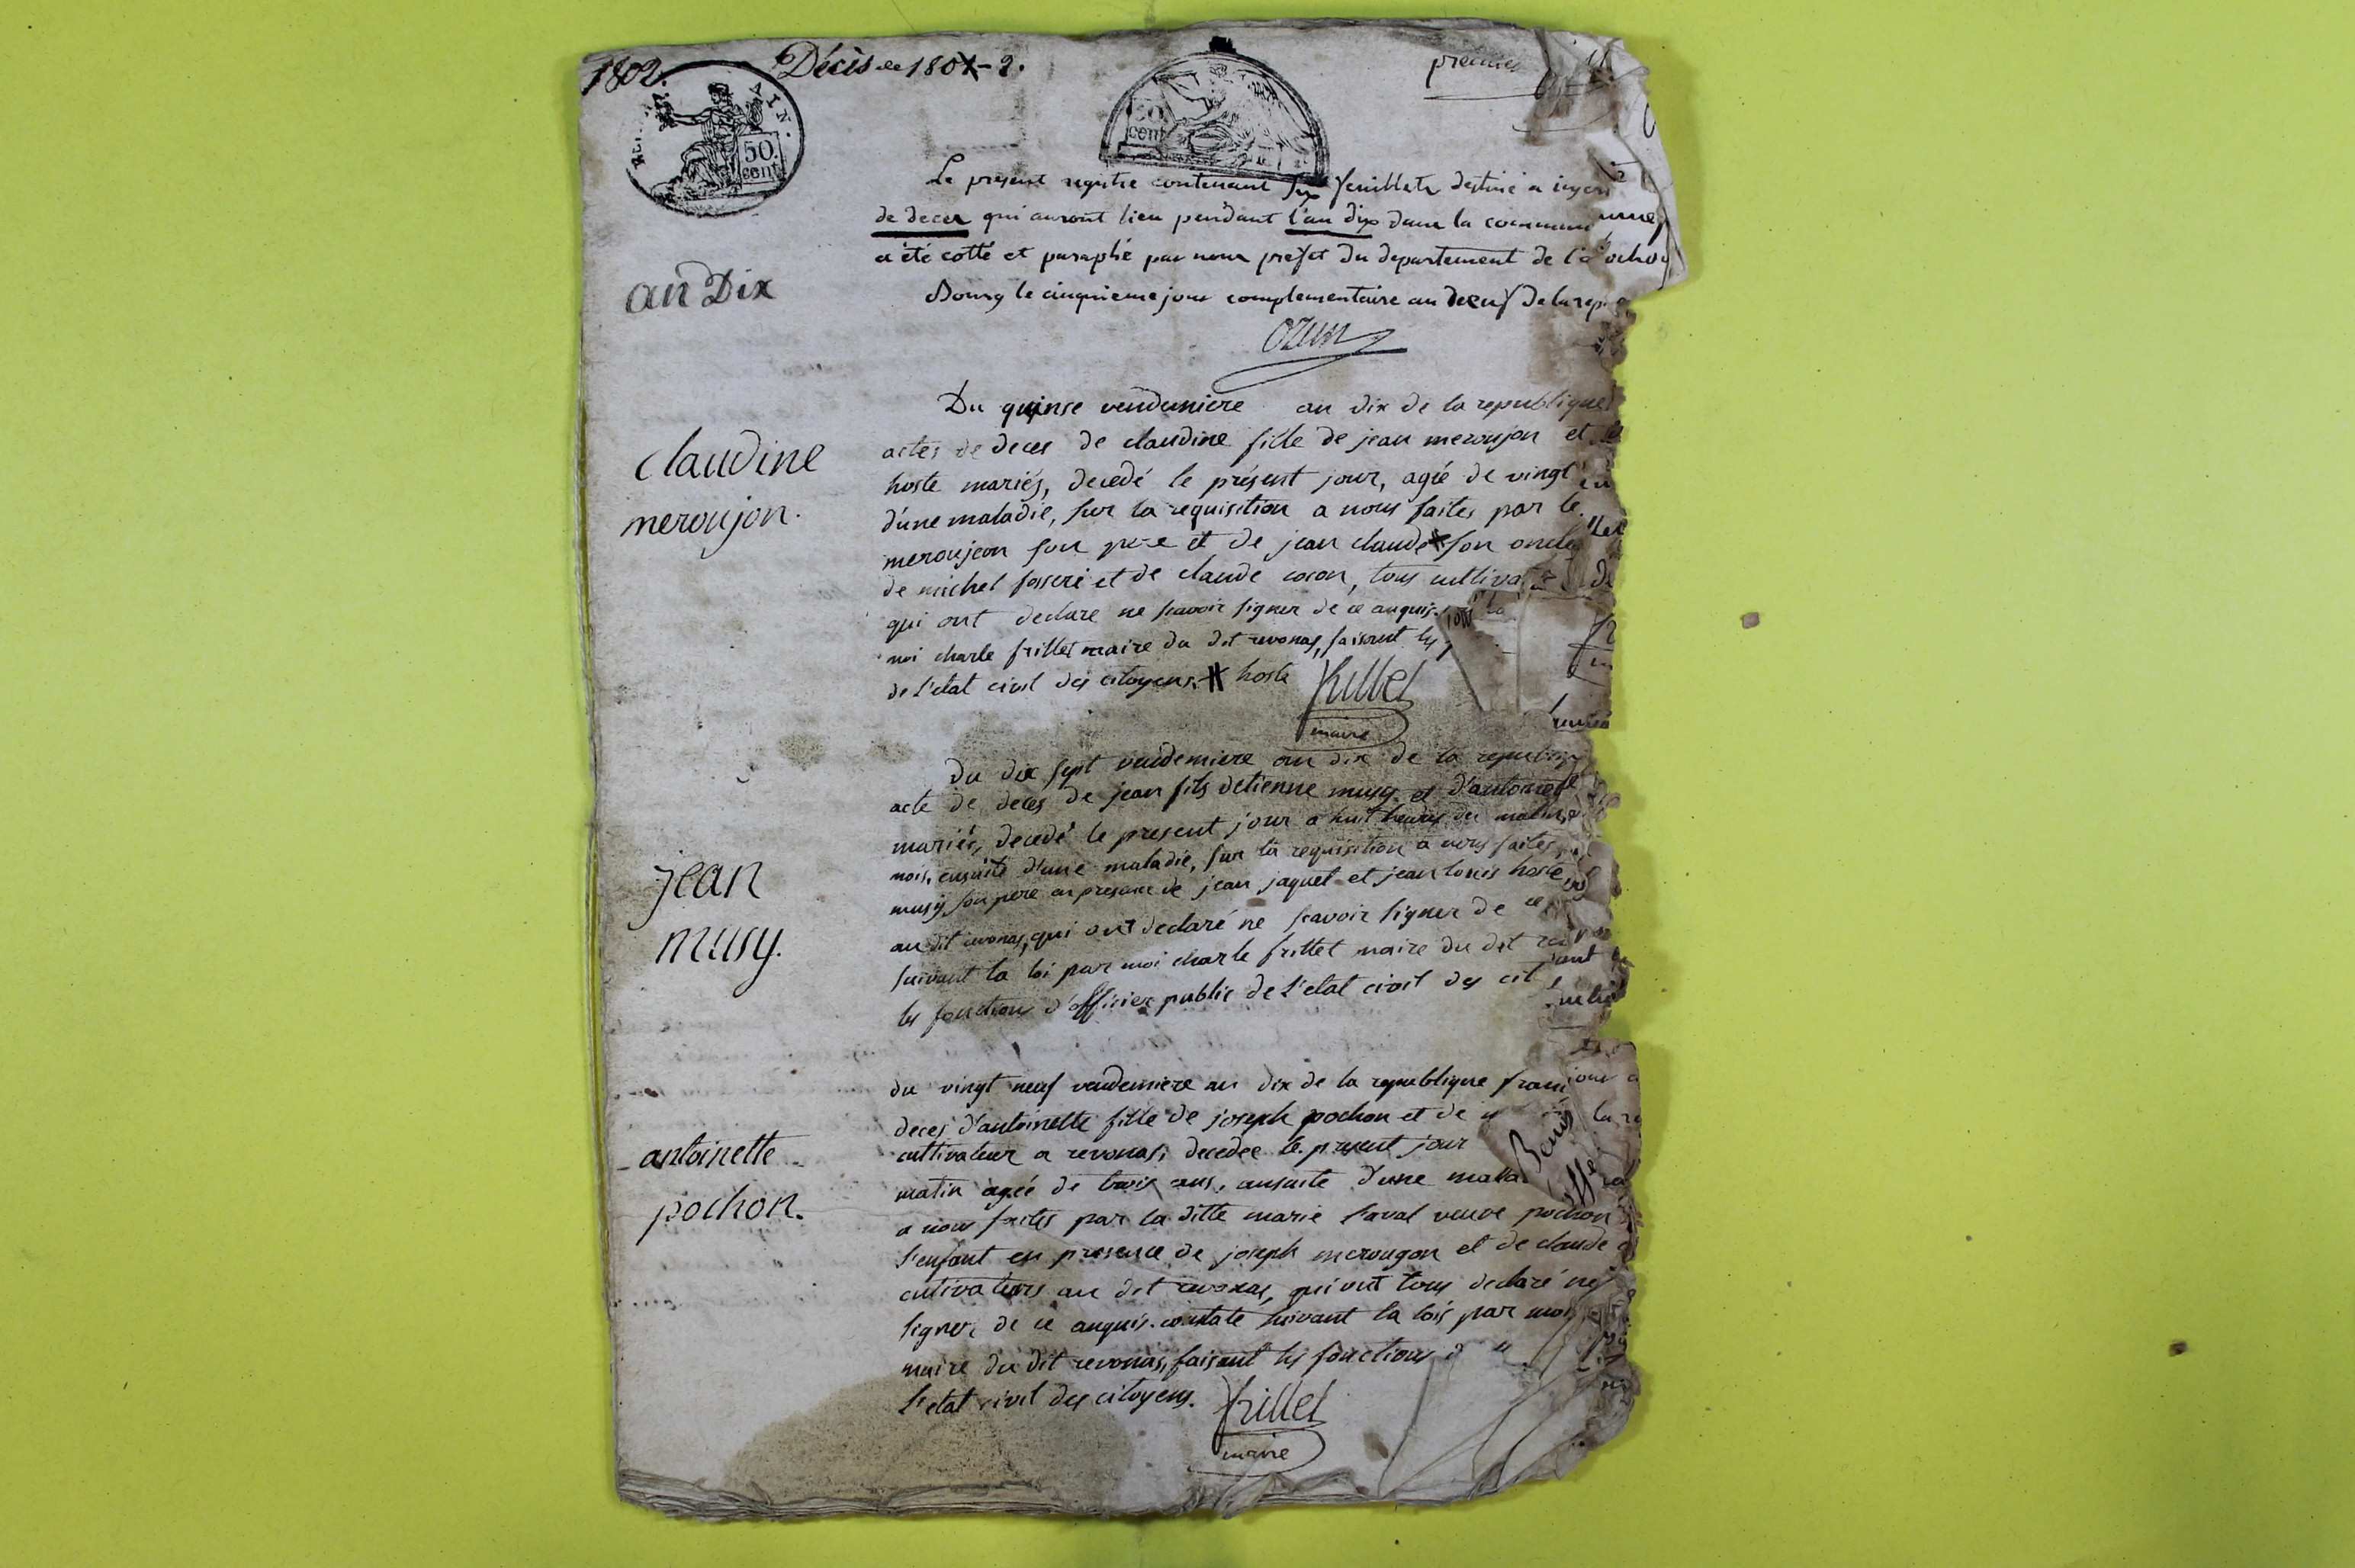 1802.
Décès de 1801-2.
premier
AIN.
50.
cent
50
cent
Le present registre contenant six feuillets destiné a
de deces qui auront lieu pendant l'an dix dans la commun
a été cotté et paraphé par nous prefet du departement de l'a
an Dix
Bourg le cinquieme jour complementaire an neuf de la rep
Ozun
Du quinse vendemiere an dix de la republique
claudine
meroujon.
actes de deces de claudine fille de jean meroujon et
hoste mariés, decedé le présent jour, agée de vingt
d'une maladie, sur la requisition a nous faites par le
meroujeon son pere et de jean claude # son oncle
de michel et de claude cocon, tous cultiva
qui ont declare ne scavoir signer de ce anquis.
moi charle frillet maire du dit revonas, faisent les
de l'etat civil des citoyens. # hoste
frillet
maire
du dix sept vendemiere an dix de la republiq
acte de deces de jean fils detienne musy et d'antoinette
jean
musy.
mariés, decedé le present jour a huit heures du matin,
mois, ensuite d'une maladie, sur la requisition a nous faites
musy son pere en presance de jean jaquet et jean louis hoste
au dit revonas, qui ont declaré ne scavoir signer de ce
suivant la loi par moi charle frillet maire du dit
les fonctions d'officier public de l'etat civil des cit
du vingt neuf vendemiere an dix de la republique fran
antoinette
pochon.
deces d'antoinette fille de joseph pochon et de
cultivateur a revonas, decedee le present jour
matin agée de trois ans, ensuite d'une mala
a nous faites par la ditte marie laval veuve pochon
l'enfant en presence de joseph merougon et de claude
cutivateurs au dit revonas, qui ont tous declaré ne
signer de ce anquis. constaté suivant la lois par moi
maire du dit revonas, faisant les fonctions d
l'etat civil des citoyens.
frillet
maire